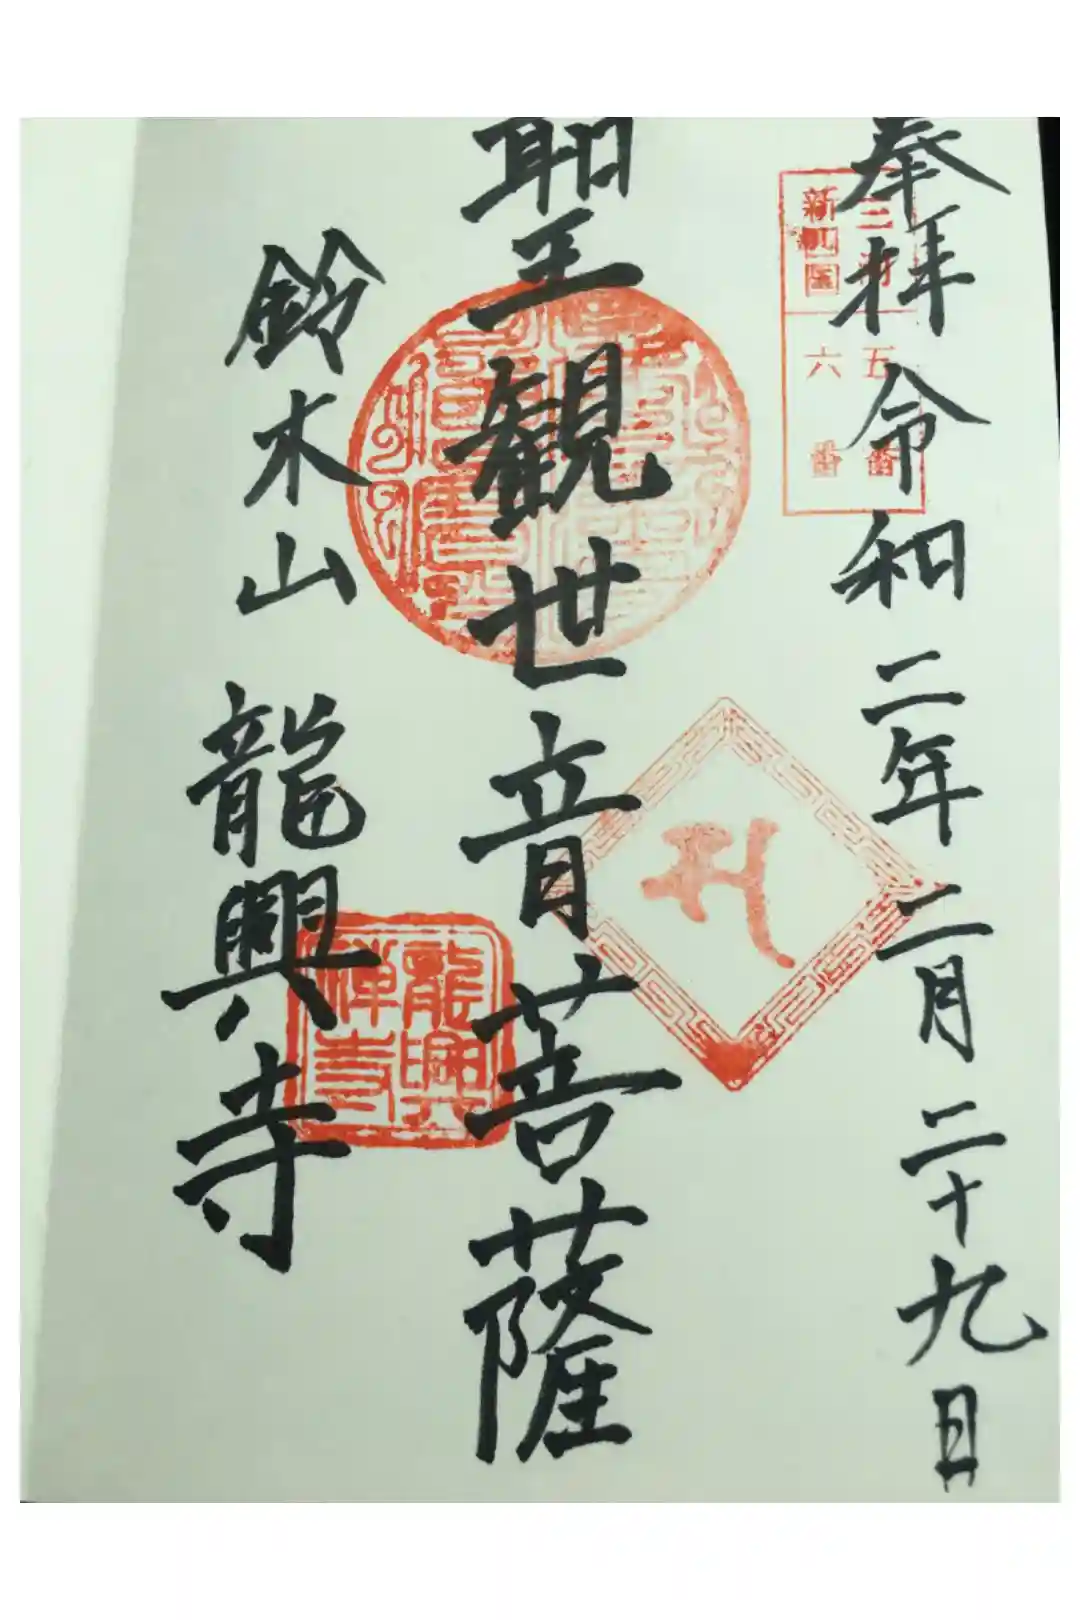 奉拝 令和二年二月二十九日
三河
新四国
五番
六番
聖観世音菩薩
鈴木山 龍興寺
龍興
禅寺